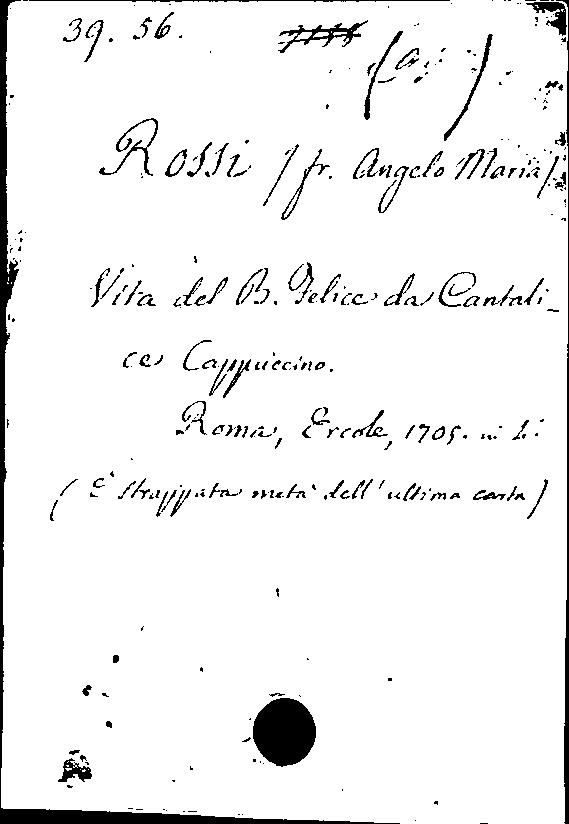 39. 56.
(a.)
Rossi (fr. Angelo Maria)
Vita del B. Felice da Cantali-
ce Cappuccino.
Roma, Ercole, 1705. in 4.°
(È strappata metà dell'ultima carta)